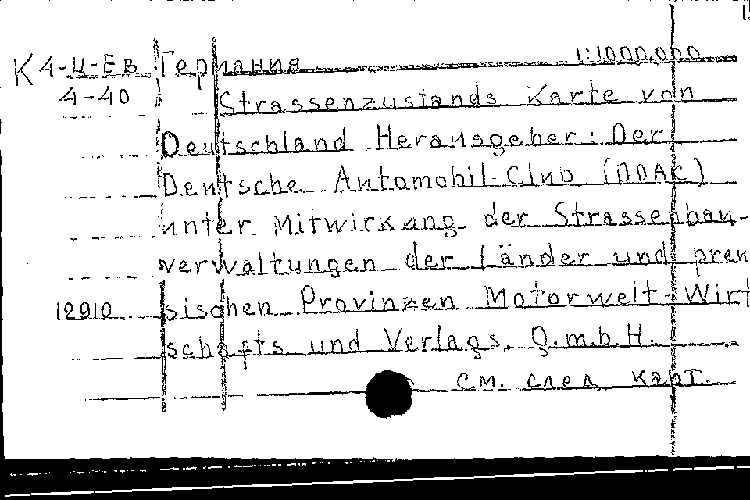 К 4-Ц-Ев Германия 1:1000,000
4-40 Strassenzustands Karte von
Deutschland Herausgeber: Der
Deutsche Automobil-Club (DDAC)
unter Mitwirkung der Strassenbau-
verwaltungen der Länder und preu
12910 sischen Provinzen Motorwelt-Wirt
schafts und Verlags. G.m.b.H.
см. след карт.